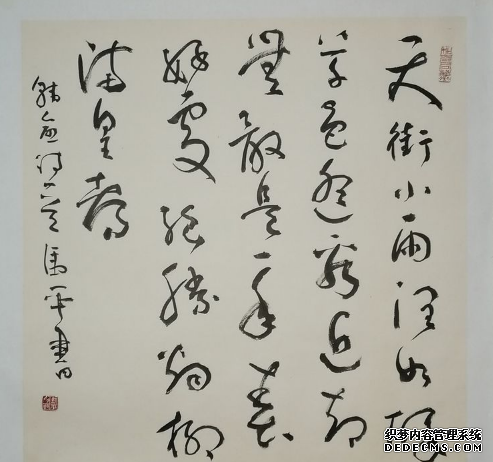 天街小雨润如酥
草色遥看近却
無最是一年春
好處绝胜烟柳
满皇都
韩愈诗一首
织梦内容管理系统
DEDECMS.COM